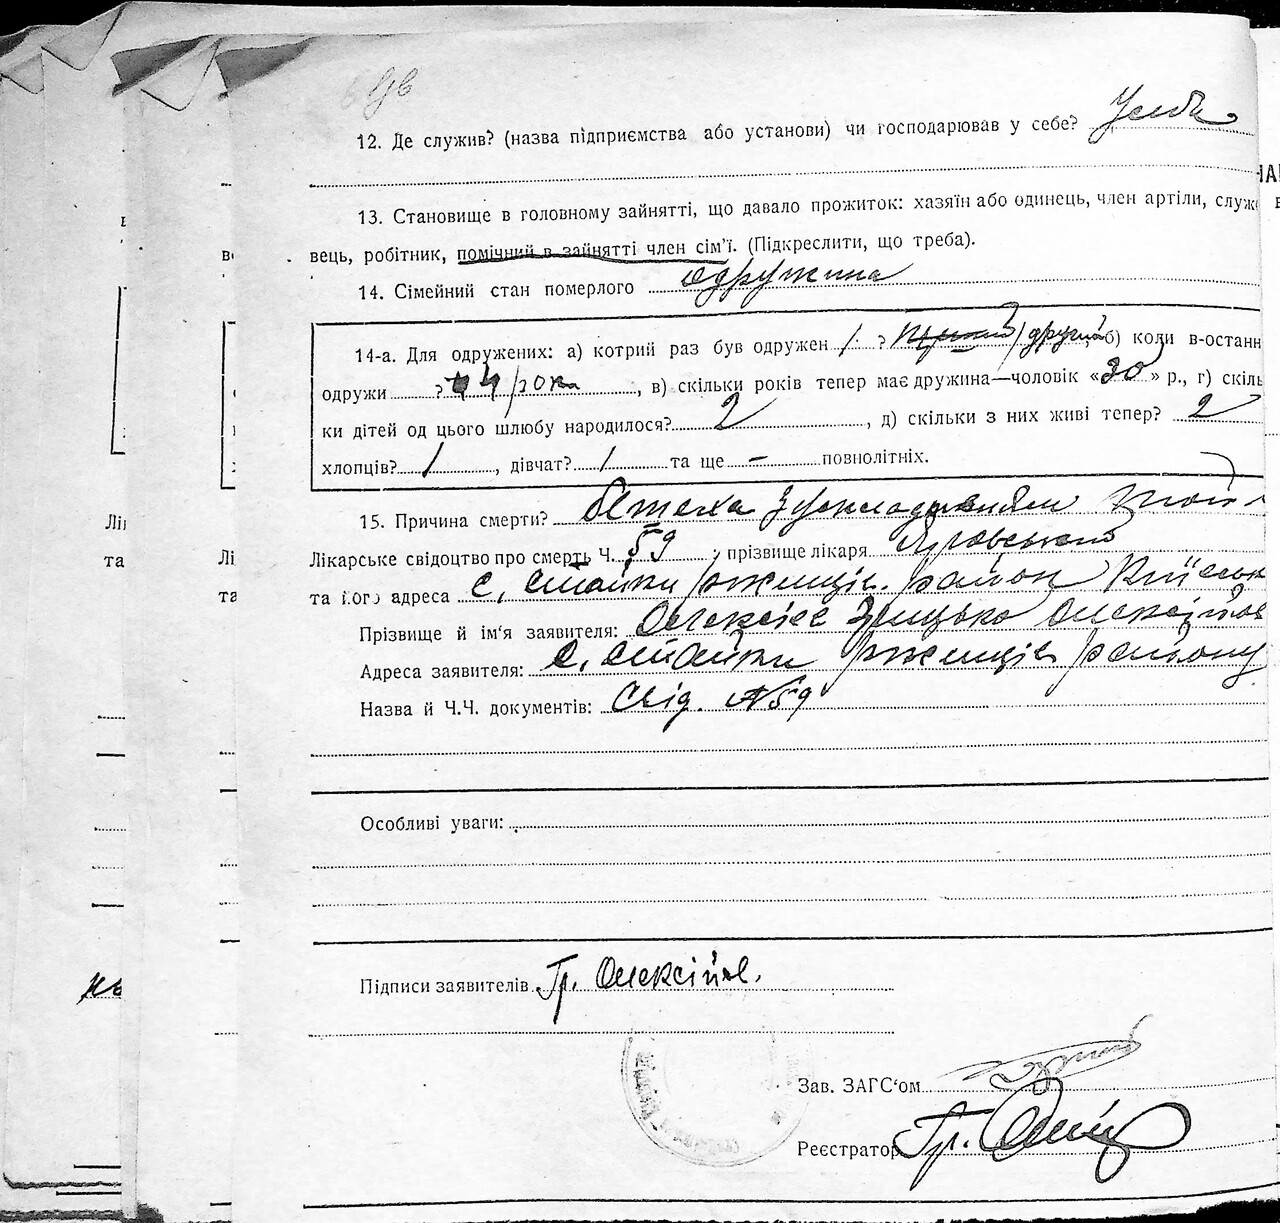 12. Де служив? (назва підприємства або установи) чи господарював у себе? У себе
13. Становище в головному зайнятті, що давало прожиток: хазяїн або одинець, член артіли, служ
вець, робітник, помічний в зайнятті член сім'ї. (Підкреслити, що треба).
14. Сімейний стан померлого одружина
14-а. Для одружених: а) котрий раз був одружен 1 ? другий б) коли в-останн
одружи ? 4 роки, в) скільки років тепер має дружина—чоловік «30» р., г) скіль
ки дітей од цього шлюбу народилося? 2, д) скільки з них живі тепер? 2
хлопців? 1, дівчат? 1 та ще – повнолітніх.
15. Причина смерти?
Лікарське свідоцтво про смерть Ч. 59; прізвище лікаря
та його адреса с. Стайки ржищів. район Київськ
Прізвище й ім'я заявителя: Олексієв Грицько Олексійов
Адреса заявителя: с. Стайки ржищів району
Назва й Ч.Ч. документів: Свід. №59
Особливі уваги:
Підписи заявителів Гр. Олексійов.
Зав. ЗАГС'ом
Реєстратор Гр.